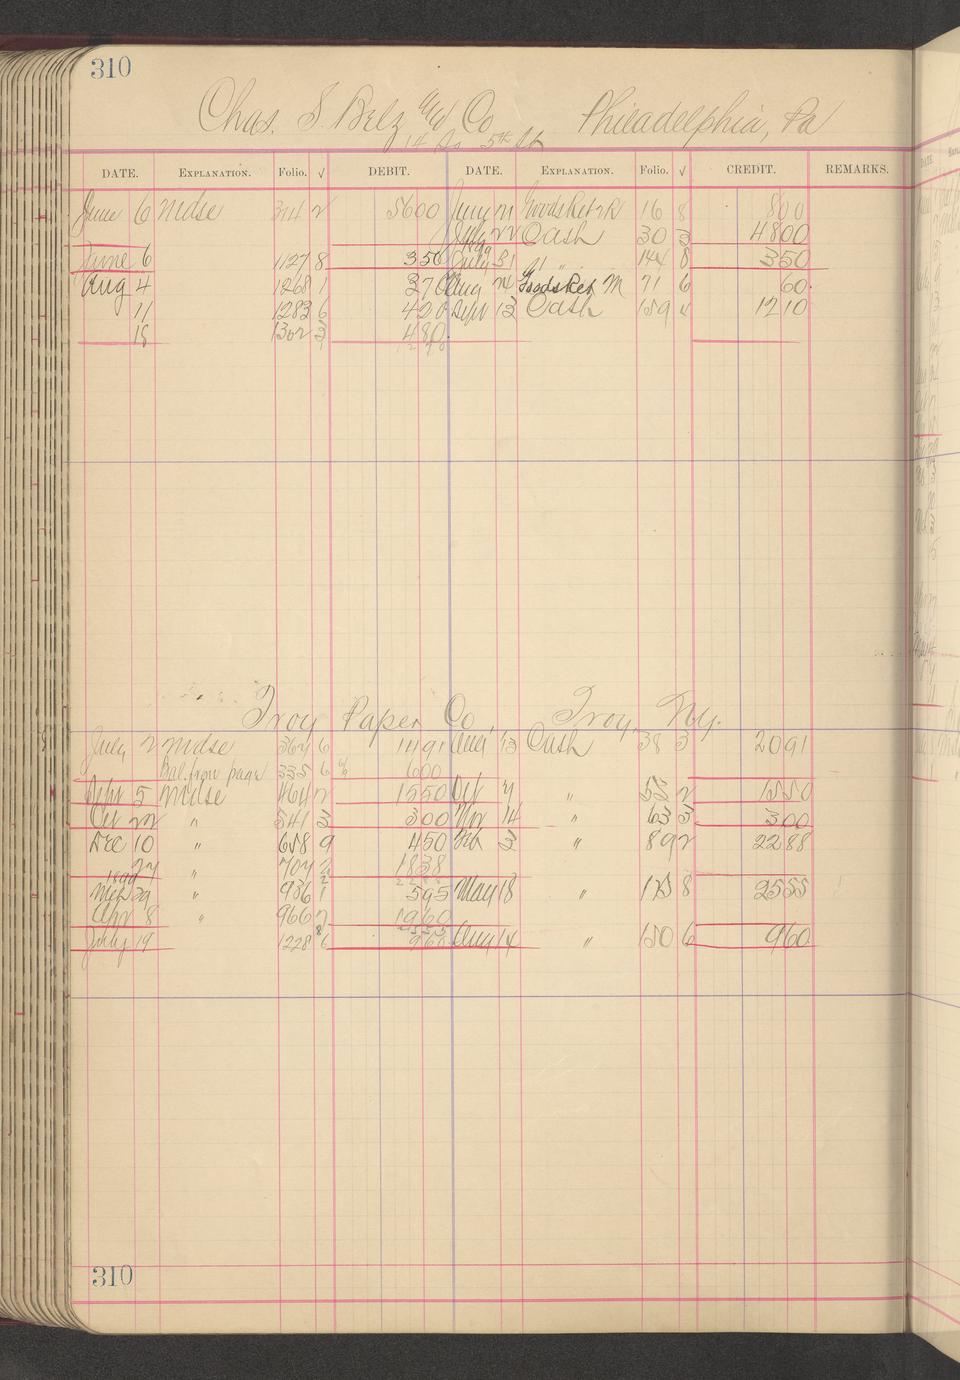 310
Chas. S. Belz Co Philadelphia, Pa
14 So 5th St
DATE. EXPLANATION. Folio. √ DEBIT. DATE. EXPLANATION. Folio. √ CREDIT. REMARKS.
June 6 Mdse 314 2 5600 June 21 Goods Ret 16 8 800
22 Cash 30 3 4800
June 6 1127 8 350 July 31 " " 144 8 350
Aug 4 1268 1 370 Aug 24 Goods Ret M 71 6 60
11 1283 6 420 Sept 13 Cash 159 1210
18 1302 3 480
Troy Paper Co, Troy, Ny.
July 2 Mdse 362 6 1491 Aug 13 Cash 38 3 2091
Bal. from page 335 6 600
Sept 5 Mdse 464 2 1550 Oct 4 " 55 2 1550
Oct 22 " 541 3 300 Nov 14 " 63 3 300
Dec 10 " 658 9 450 Feb 3 " 89 2 2288
24 " 704 1838
Mch 29 " 936 1 595 May 18 " 125 8 2555
Apr 8 " 966 2 1960
July 19 1228 6 960 Aug 14 " 150 6 960
310